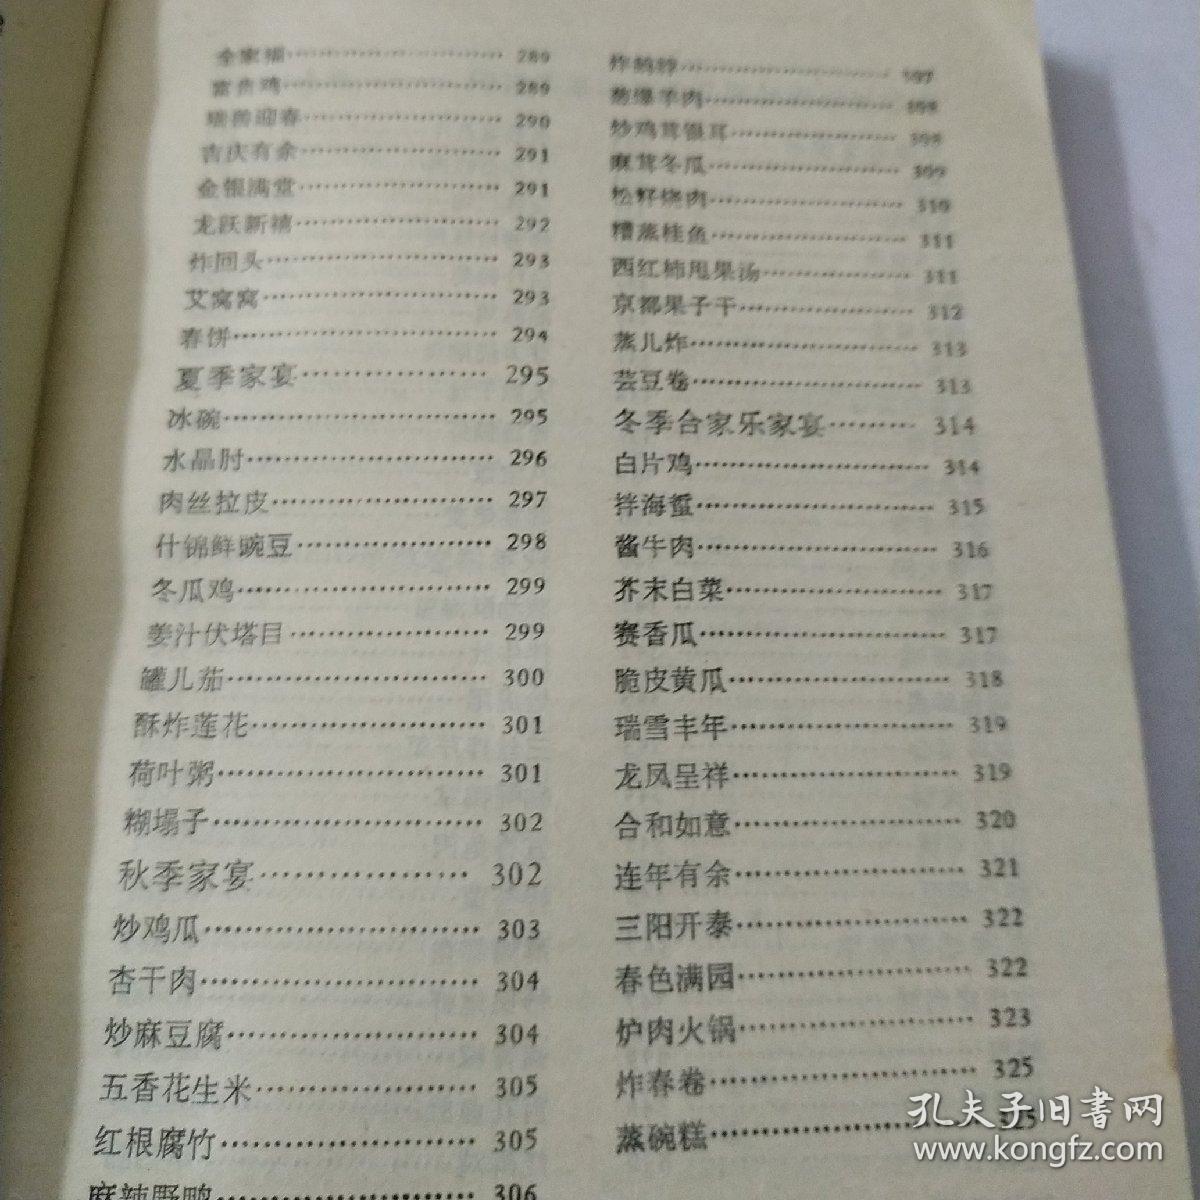 全家福 289
富贵鸡 289
瑞兽迎春 290
吉庆有余 291
金银满堂 291
龙跃新禧 292
炸回头 293
艾窝窝 293
春饼 294
夏季家宴 295
冰碗 295
水晶肘 296
肉丝拉皮 297
什锦鲜豌豆 298
冬瓜鸡 299
姜汁伏塔目 299
罐儿茄 300
酥炸莲花 301
荷叶粥 301
糊塌子 302
秋季家宴 302
炒鸡瓜 303
杏干肉 304
炒麻豆腐 304
五香花生米 305
红根腐竹 305
麻辣野鸭 306
炸鹌脖 307
葱爆羊肉 308
炒鸡茸银耳 308
麻茸冬瓜 309
松籽烧肉 310
糟蒸桂鱼 311
西红柿甩果汤 311
京都果子干 312
蒸儿炸 313
芸豆卷 313
冬季合家乐家宴 314
白片鸡 314
拌海蜇 315
酱牛肉 316
芥末白菜 317
赛香瓜 317
脆皮黄瓜 318
瑞雪丰年 319
龙凤呈祥 319
合和如意 320
连年有余 321
三阳开泰 322
春色满园 322
炉肉火锅 323
炸春卷 325
蒸碗糕 325
孔夫子旧书网
www.kongfz.com